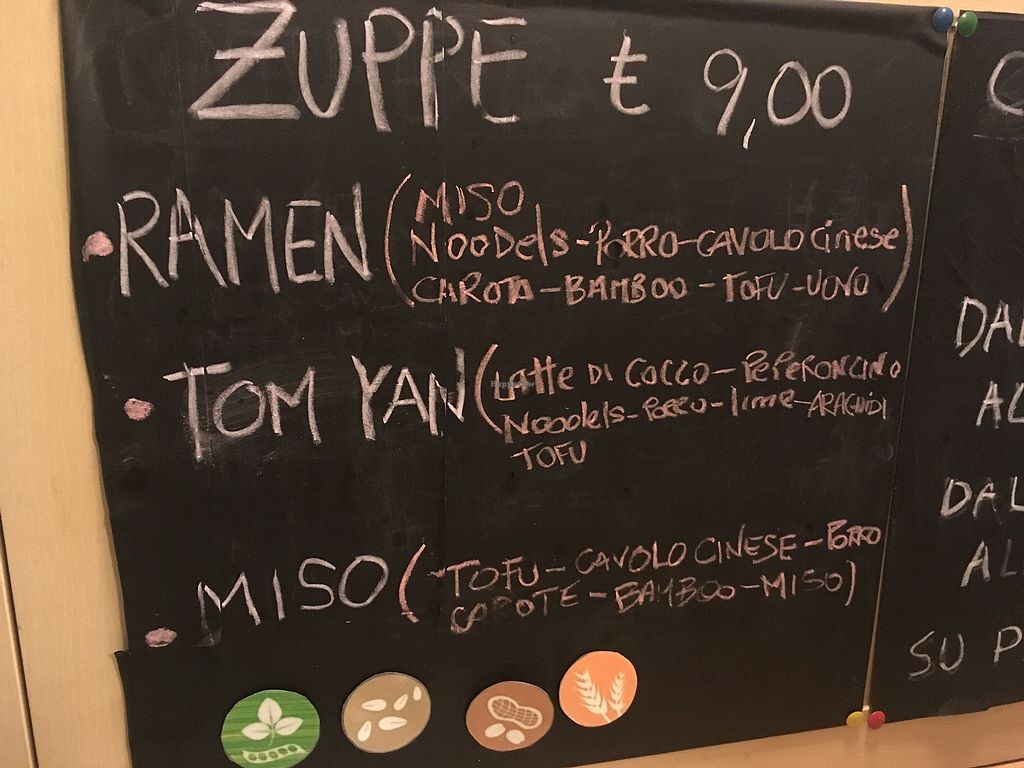 ZUPPE € 9,00
RAMEN (MISO
NOODELS-PORRO-CAVOLO cinese
CAROTA-BAMBOO-TOFU-UOVO)
TOM YAN (LATTE DI COCCO-PEPERONCINO
NOODELS-PORRO-lime-ARACHIDI
TOFU
MISO (-TOFU-CAVOLO CINESE-PORRO
CAROTE-BAMBOO-MISO)
DAL
AL
DAL
AL
SU P